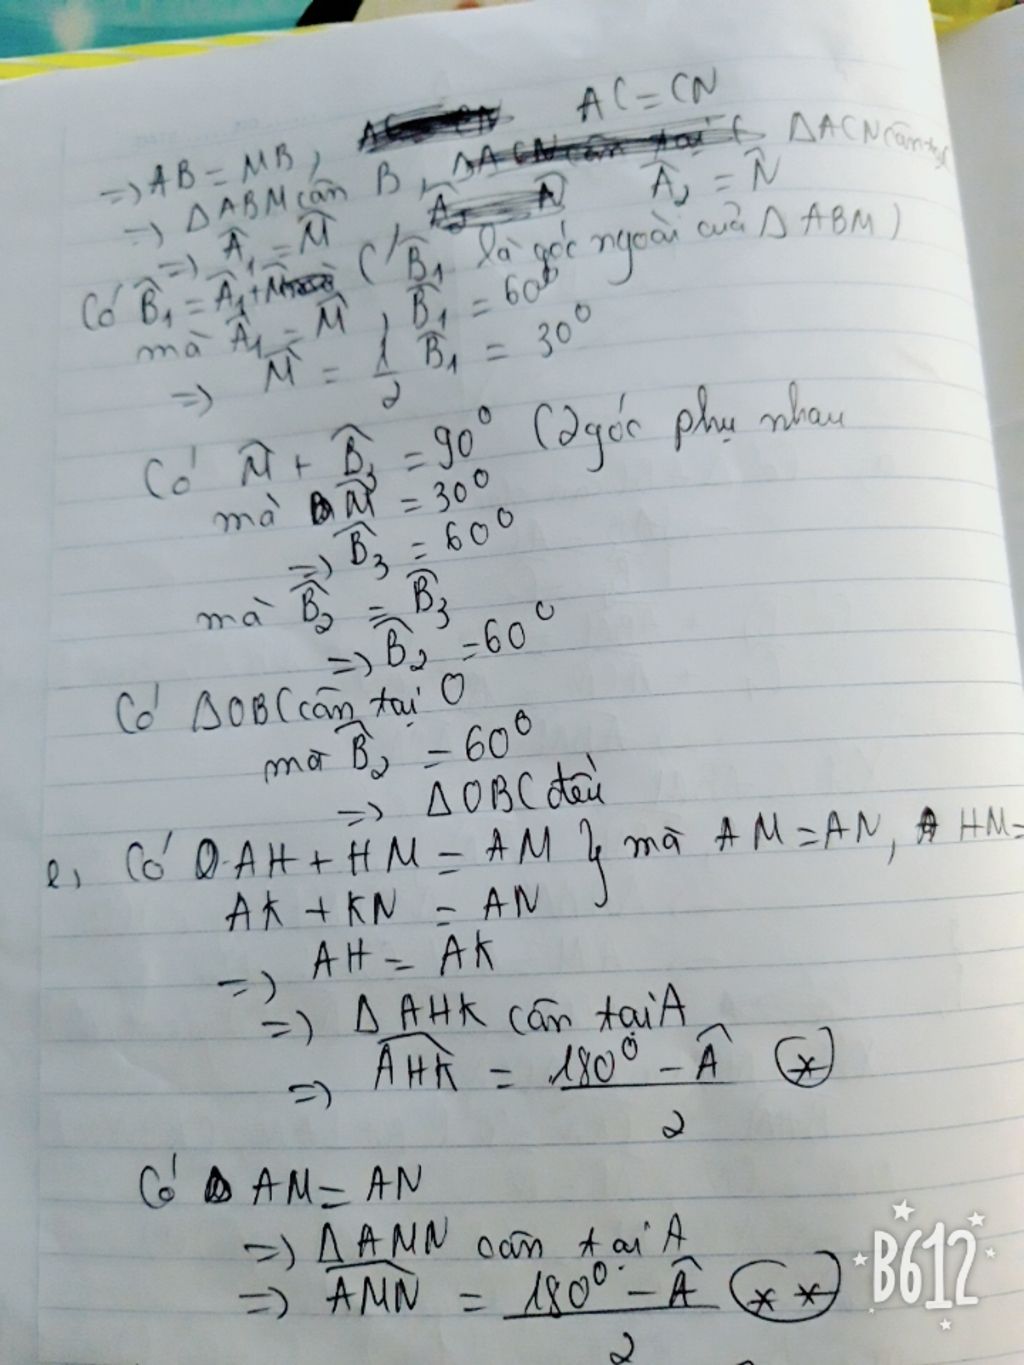 => AB = MB, AC = CN
=> ΔABM cân B, ΔACN cân tại
=> Â₁ = M̂ Â₂ = N̂
Có B̂₁ = Â₁ + M̂ (B̂₁ là góc ngoài của Δ ABM)
mà Â₁ = M̂, B̂₁ = 60⁰
=> M̂ = 1/2 B̂₁ = 30⁰
Có M̂ + B̂₃ = 90⁰ (2 góc phụ nhau
mà M̂ = 30⁰
=> B̂₃ = 60⁰
mà B̂₂ = B̂₃
=> B̂₂ = 60⁰
Có ΔOBC cân tại O
mà B̂₂ = 60⁰
=> ΔOBC đều
e, Có AH + HM = AM } mà AM = AN, HM =
AK + KN = AN
=> AH = AK
=> Δ AHK cân tại A
=> AHK̂ = (180⁰ - Â)/2 (*)
Có AM = AN
=> ΔAMN cân tại A
=> AMN̂ = (180⁰ - Â)/2 (**)
B612